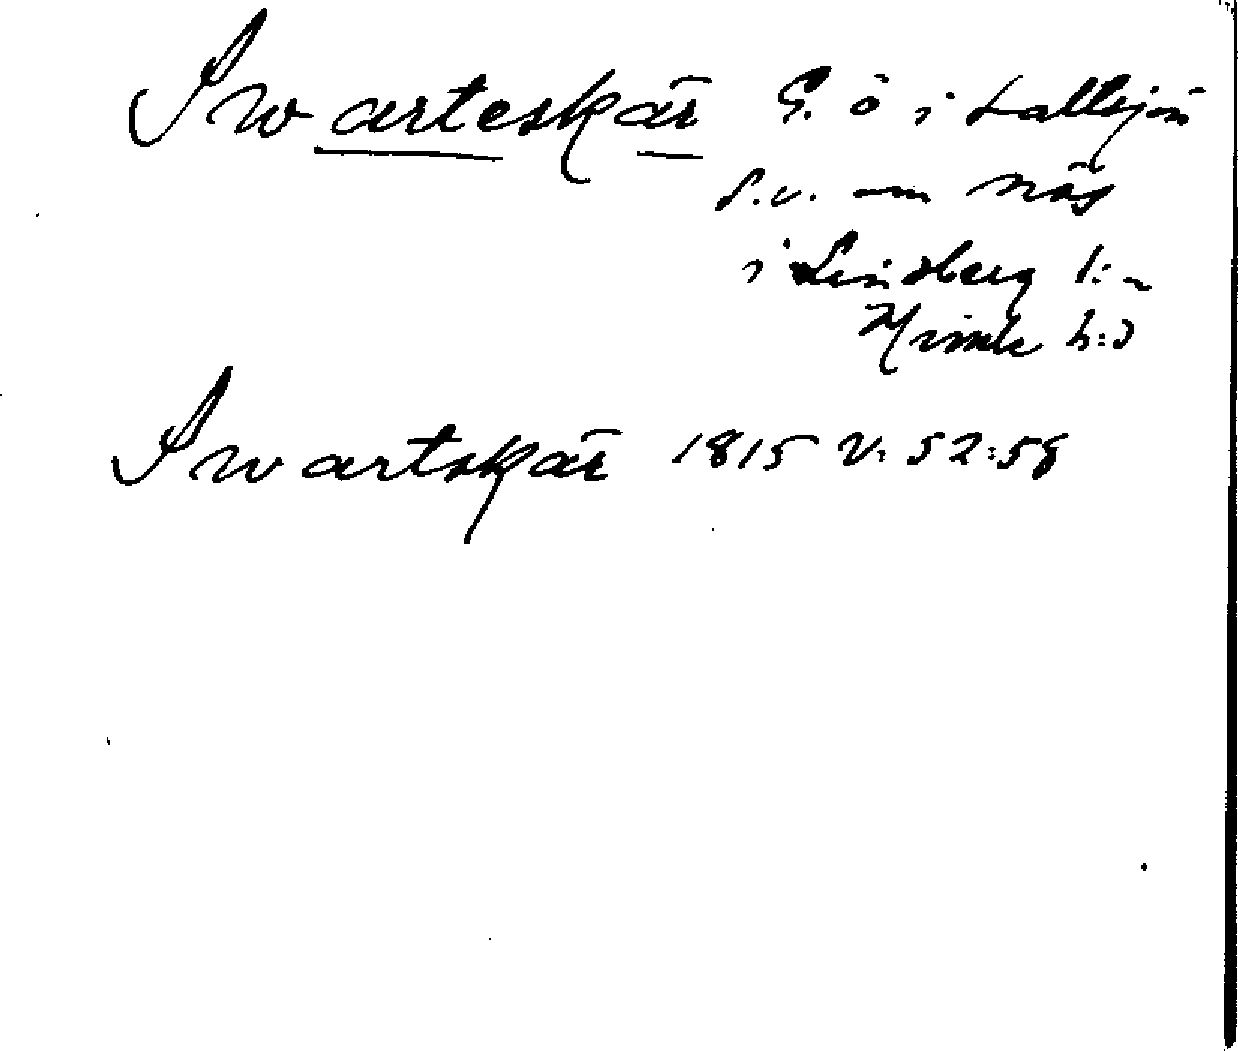 Swarteskär G. ö i Lallsjön
S.v. om Näs
i Lindberg l:n
h:d
Swartskär 1815 V. 52:58